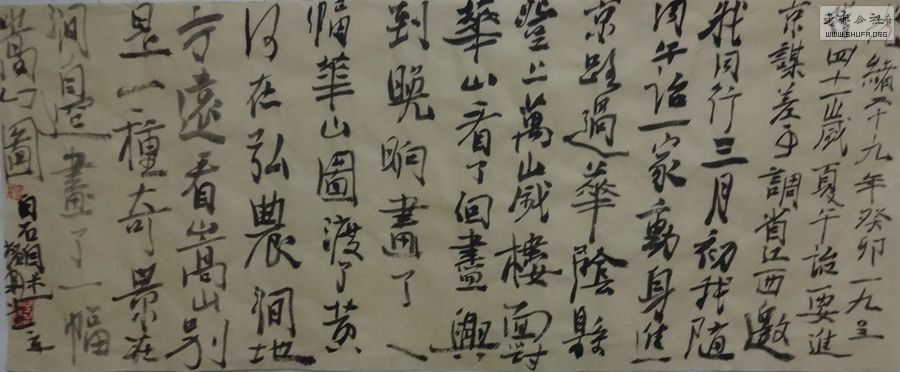 光緒二十九年癸卯一九〇三
四十一歲夏午詒要進
京謀差手調省江西邀
我同行三月初我隨
同午詒一家動身進
京路過華陰縣
登上萬歲樓面對
華山看了個盡興
到晚晌畫了一
幅華山圖渡了黃
河在弘農澗地
方遠看嵩山別
是一種奇景在
澗邊畫了一幅
嵩山圖
白石
書法公社
WWW.SHUFA.ORG